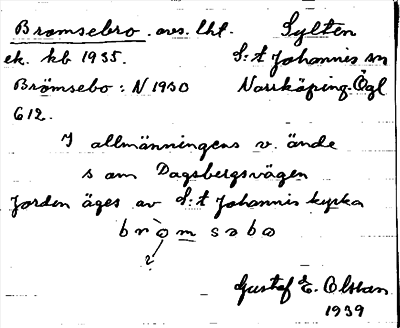 Bromsebro. avs. lht. Sylten
ek. kb 1935. S:t Johannis sn
Brömsebo: N 1930 Norrköping. Ögl
612.
I allmänningens v. ände
s om Dagsbergsvägen
Jorden äges av S:t Johannis kyrka
bròmsabo
?
Gustaf E. Olsson
1939